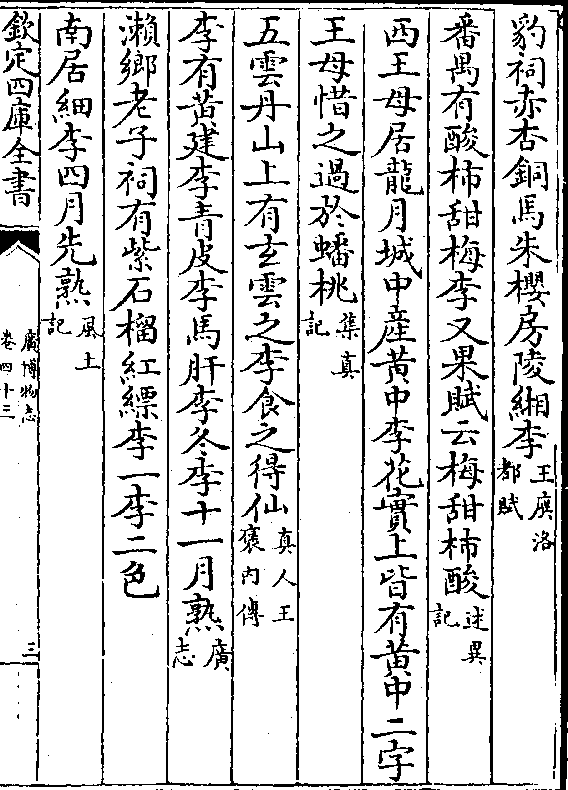 豹祠赤杏銅馬朱櫻房陵緗李王廙洛都賦
番禺有酸柿甜梅李又果賦云梅甜柿酸述異記
西王母居龍月城中產黃中李花實上皆有黃中二字
王母惜之過於蟠桃集真記
五雲丹山上有玄雲之李食之得仙真人王褒内傳
李有黃建李青皮李馬肝李冬李十一月熟廣志
瀨鄉老子祠有紫石榴紅縹李一李二色
南居細李四月先熟風土記
欽定四庫全書
廣博物志
卷四十三
三